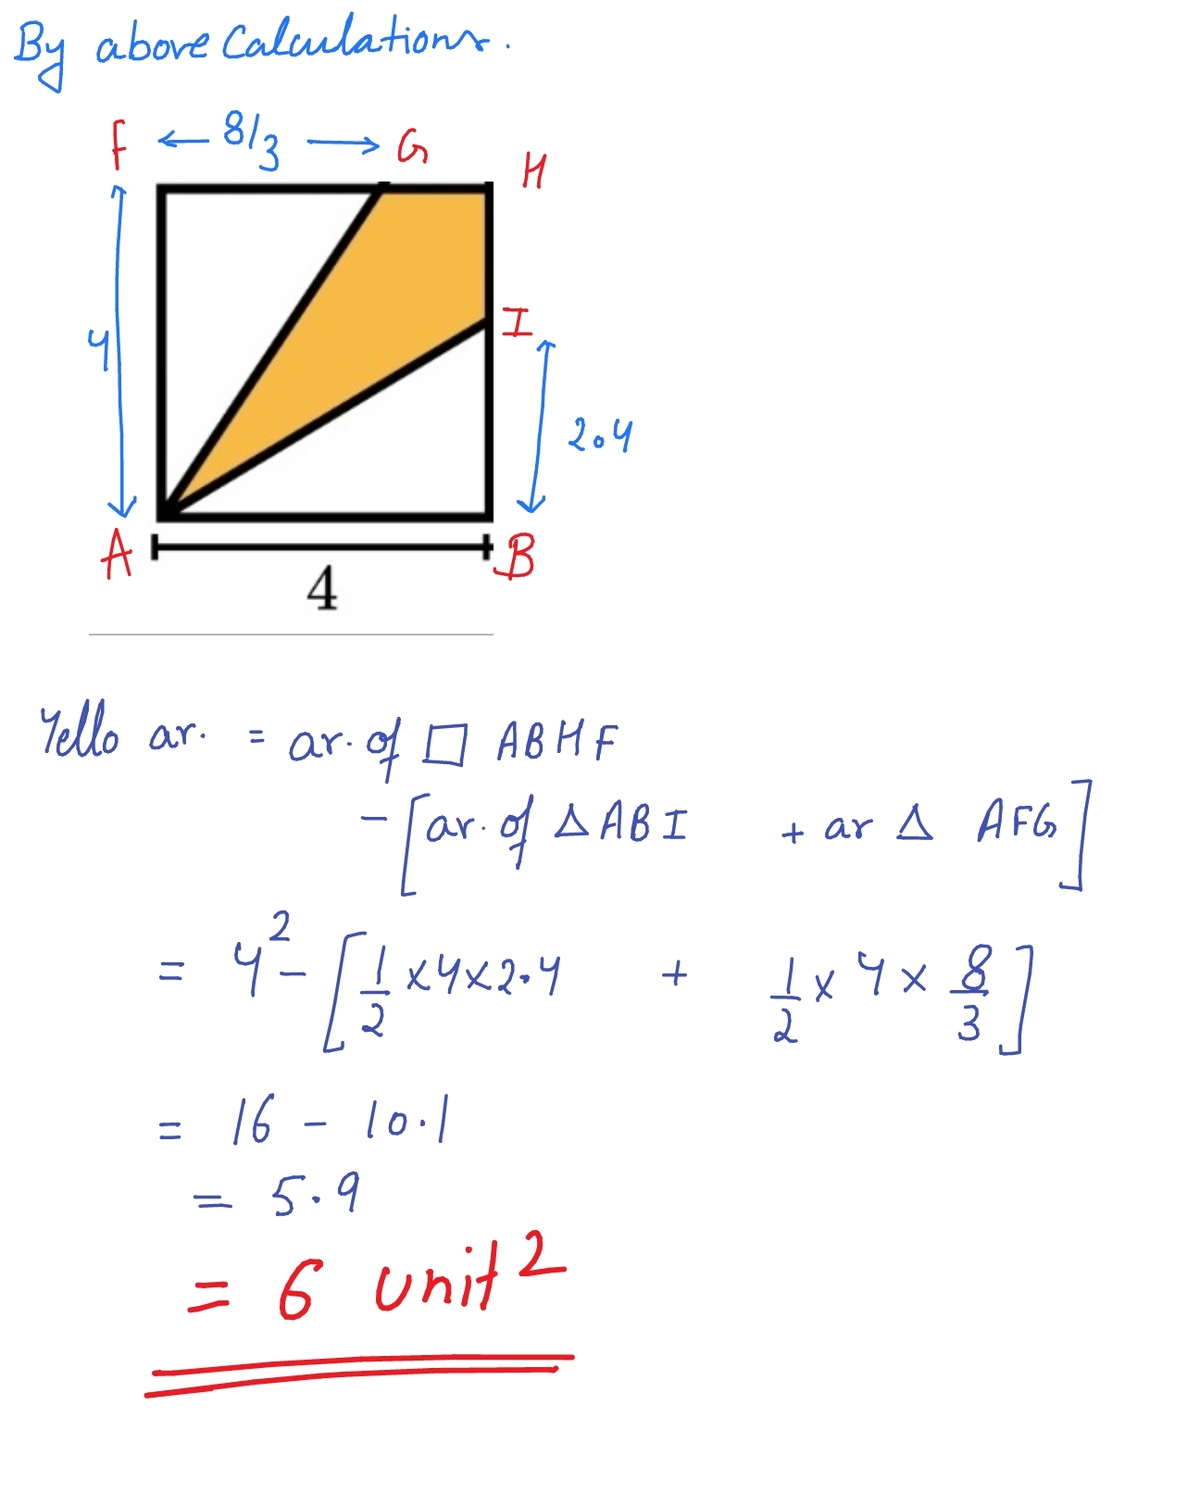 By above Calculations.
F ← 8/3 → G
H
4
I
2.4
A
B
4
Yello ar. = ar. of □ ABHF
- [ar. of △ ABI + ar △ AFG]
= 4² - [1/2 × 4 × 2.4 + 1/2 × 4 × 8/3]
= 16 - 10.1
= 5.9
= 6 unit²